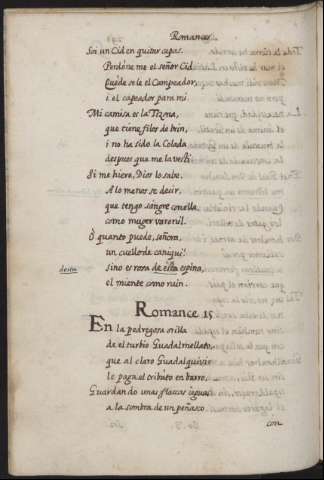 Romances.
Soi un Cid en quitar capas.
Perdóne me el señor Cid,
Quéde se le el Campeador,
i el capeador para mi.
Mi camisa es la Tizona,
que tiene filos de brin,
i no ha sido la Colada
despues que me la vesti
Si me hiere, Dios lo sabe.
A lo menos se decir,
que tengo sangre con ella
como muger varonil.
O quanto puedo, señora,
un cuello de caniqui!
desta
Sino es rosa de esta espina,
el miente como ruin.
Romance 15
En la pedregosa orilla
de el turbio Guadalmellato,
que al claro Guadalquivir
le paga el tributo en barro,
Guardando unas flacas ieguas
a la sombra de un peñasco.
con